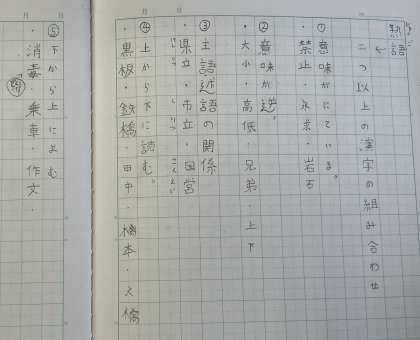 熟語
二つ以上の漢字の組み合わせ
①意味がにている。
禁止・永久・岩石
②意味が逆。
・大小・高低・兄弟 上下
③主語述語の関係
・県立・市立・国営
④上から下に読む。
・黒板・鉄橋・田中・橋本・大橋
⑤下から上によむ
・消毒・乗車・作文・